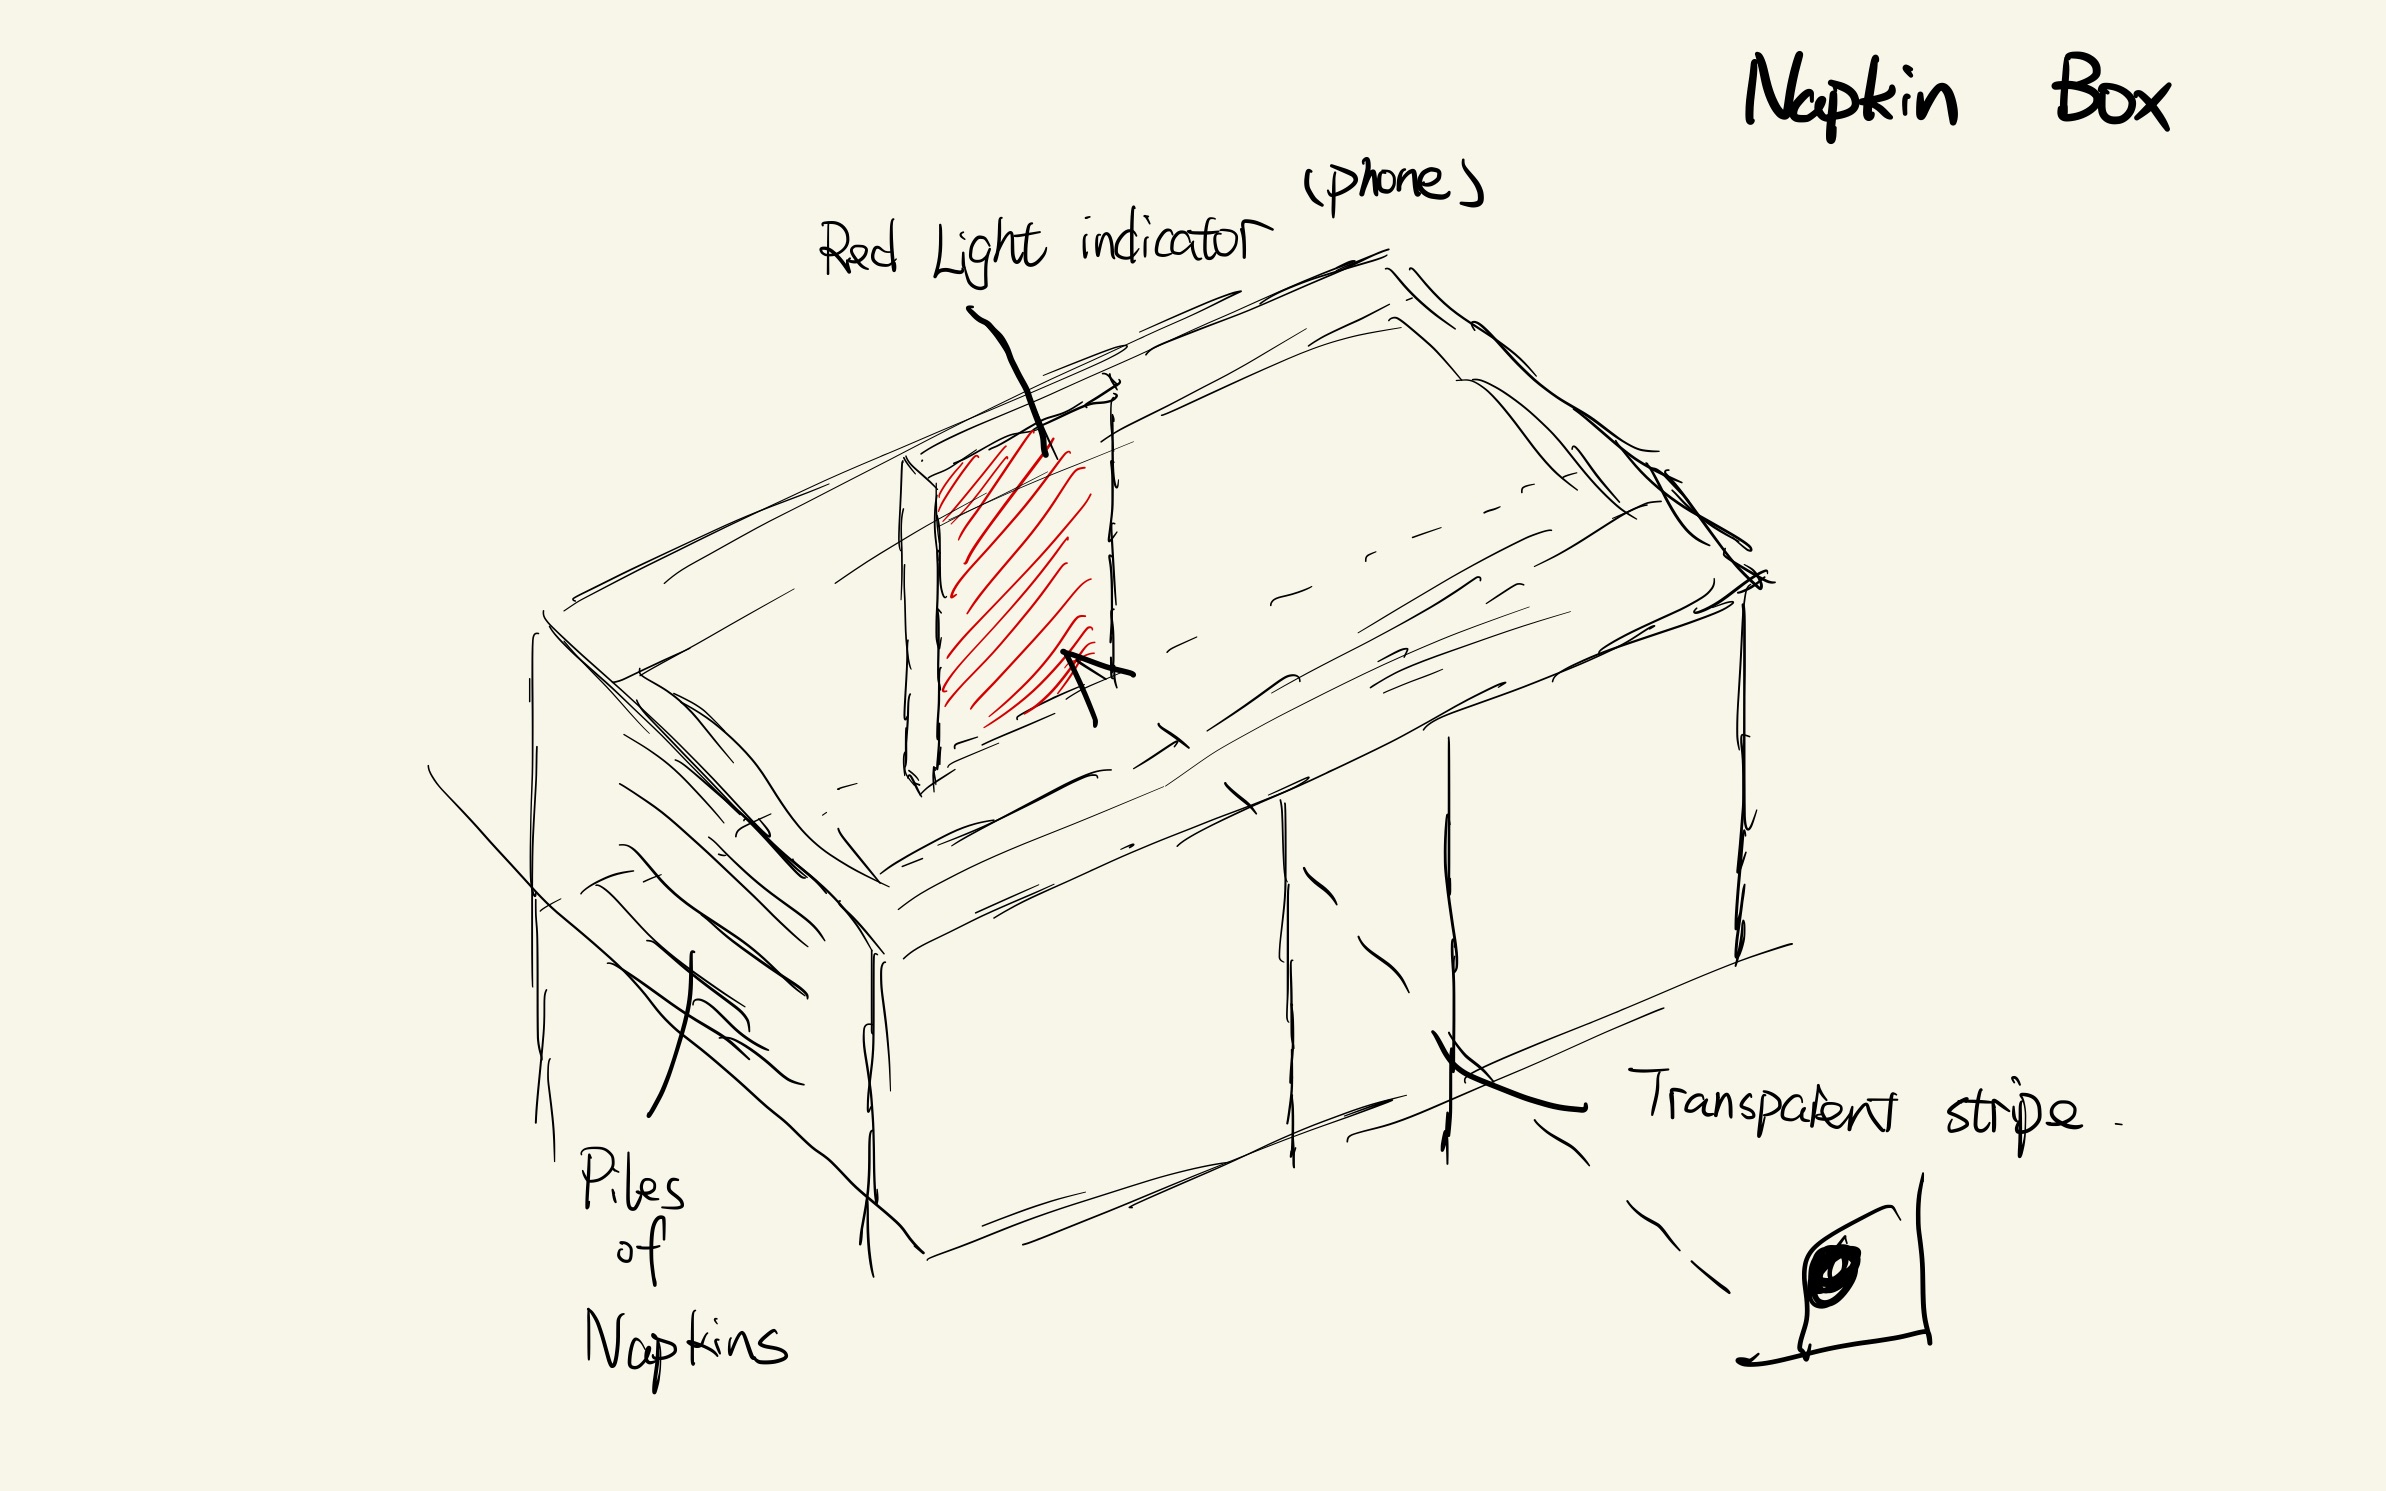 Napkin Box
(phone)
Red Light indicator
Transparent stripe.
Piles
of
Napkins